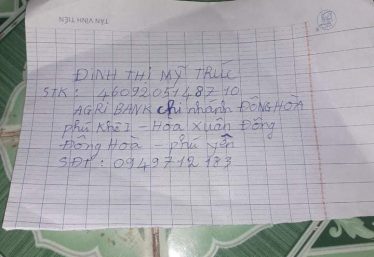 TÂN VĨNH TIẾN
ĐINH THỊ MỸ TRÚC
STK : 4609205148710
AGRIBANK chi nhánh ĐÔNG HÒA
phú Khê I - Hòa Xuân Đông
Đông Hoà - phú yên
SĐT : 0949712183